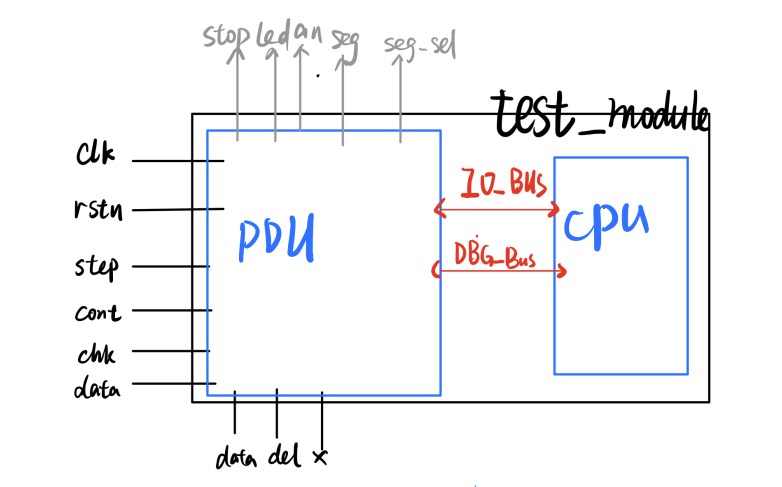 stop led an seg seg_sel
test_module
clk
rstn
step
cont
chk
data
PDU
IO_BUS
DBG_Bus
cpu
data del x